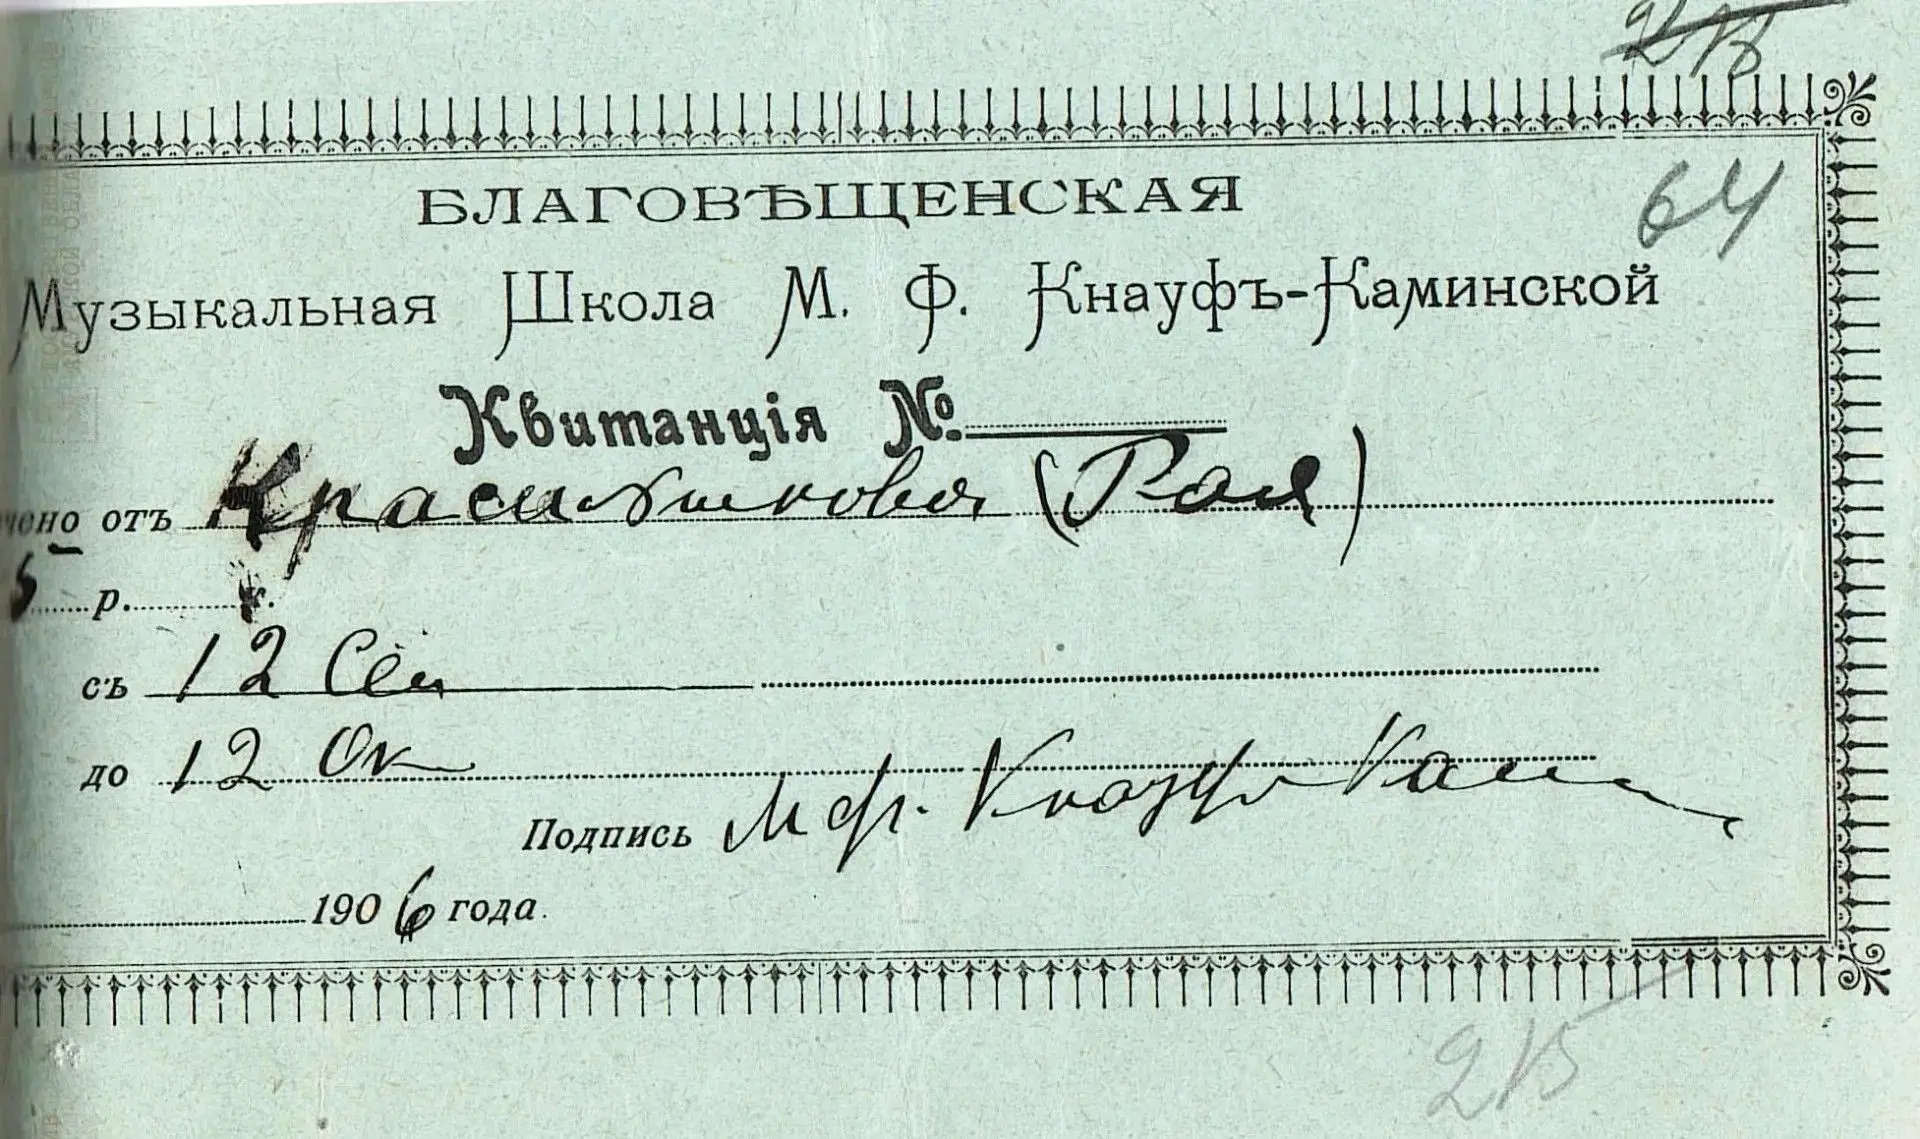 64
БЛАГОВѢЩЕНСКАЯ
Музыкальная Школа М. Ф. Кнауфъ-Каминской
Квитанція №
чено отъ Красильникова (Рая)
5 р. к.
съ 12 Сен
до 12 Ок
Подпись М Ф. Кнауф Камин
1906 года.
215